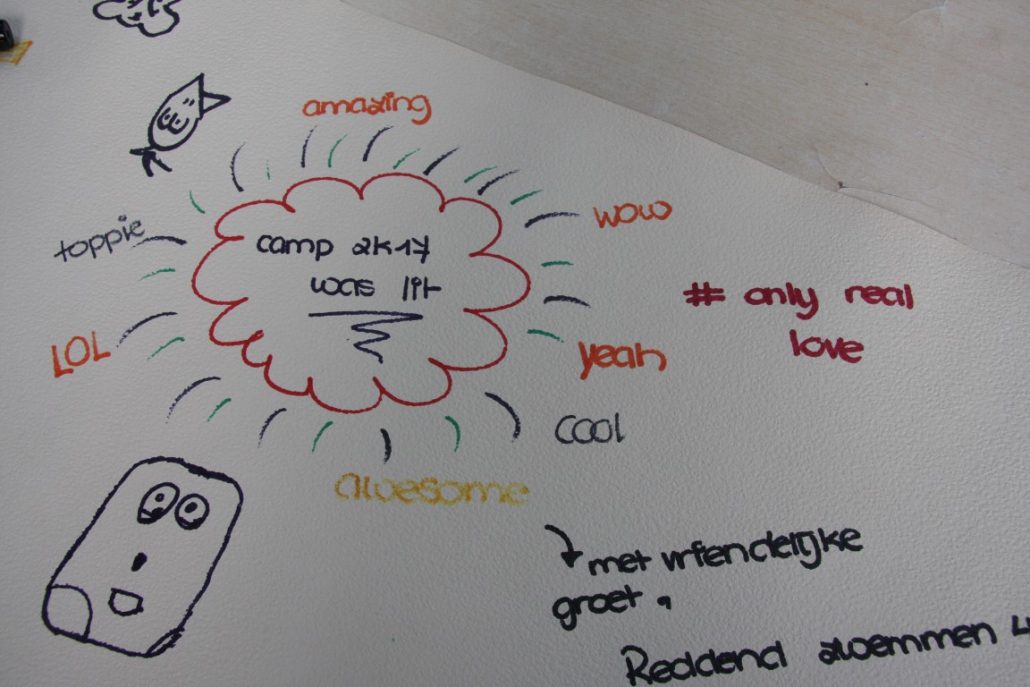 amazing
toppie
camp 2k17
was lit
wow
# only real
love
LOL
yeah
cool
awesome
met vriendelijke
groet,
Reddend zwemmen 4